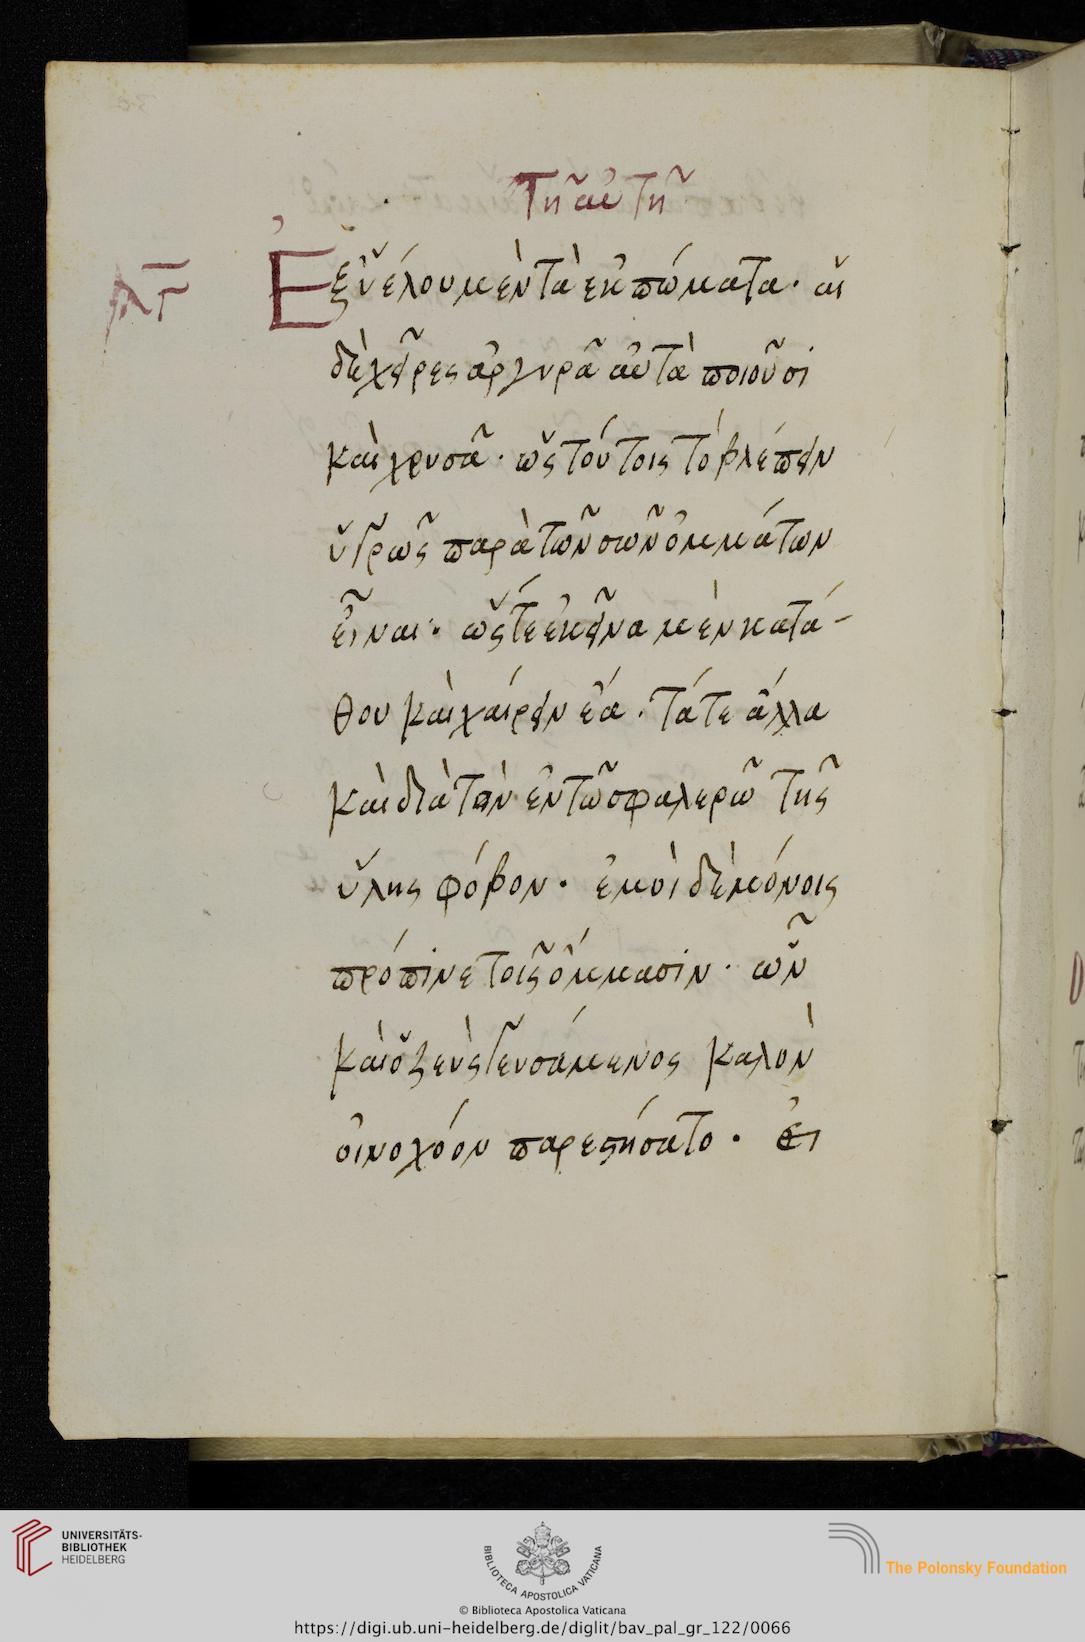 Τῆ αὐτῆ
λγ
Ἐξ ὑέλου μὲν τὰ ἐκπώματα· αἱ
δὲ χεῖρες ἀργυρᾶ αὐτὰ ποιοῦσι
καὶ χρυσᾶ· ὡς τούτοις τὸ βλέπειν
ὑγρῶς παρὰ τῶν σῶν ὀμμάτων
εἶναι· ὥς τε ἐκεῖνα μὲν κατά-
θου καὶ χαίρειν ἔα. τά τε ἄλλα
καὶ διὰ τὸν ἐν τῶ σφαλερῶ τῆς
ὕλης φόβον· ἐμοὶ δὲ μόνοις
πρόπινε τοῖς ὄμμασιν· ὧν
καὶ ὁ ζεὺς γευσάμενος καλὸν
οἰνοχόον παρεστήσατο· Εἰ
UNIVERSITÄTS-
BIBLIOTHEK
HEIDELBERG
BIBLIOTECA APOSTOLICA VATICANA
The Polonsky Foundation
© Biblioteca Apostolica Vaticana
https://digi.ub.uni-heidelberg.de/diglit/bav_pal_gr_122/0066